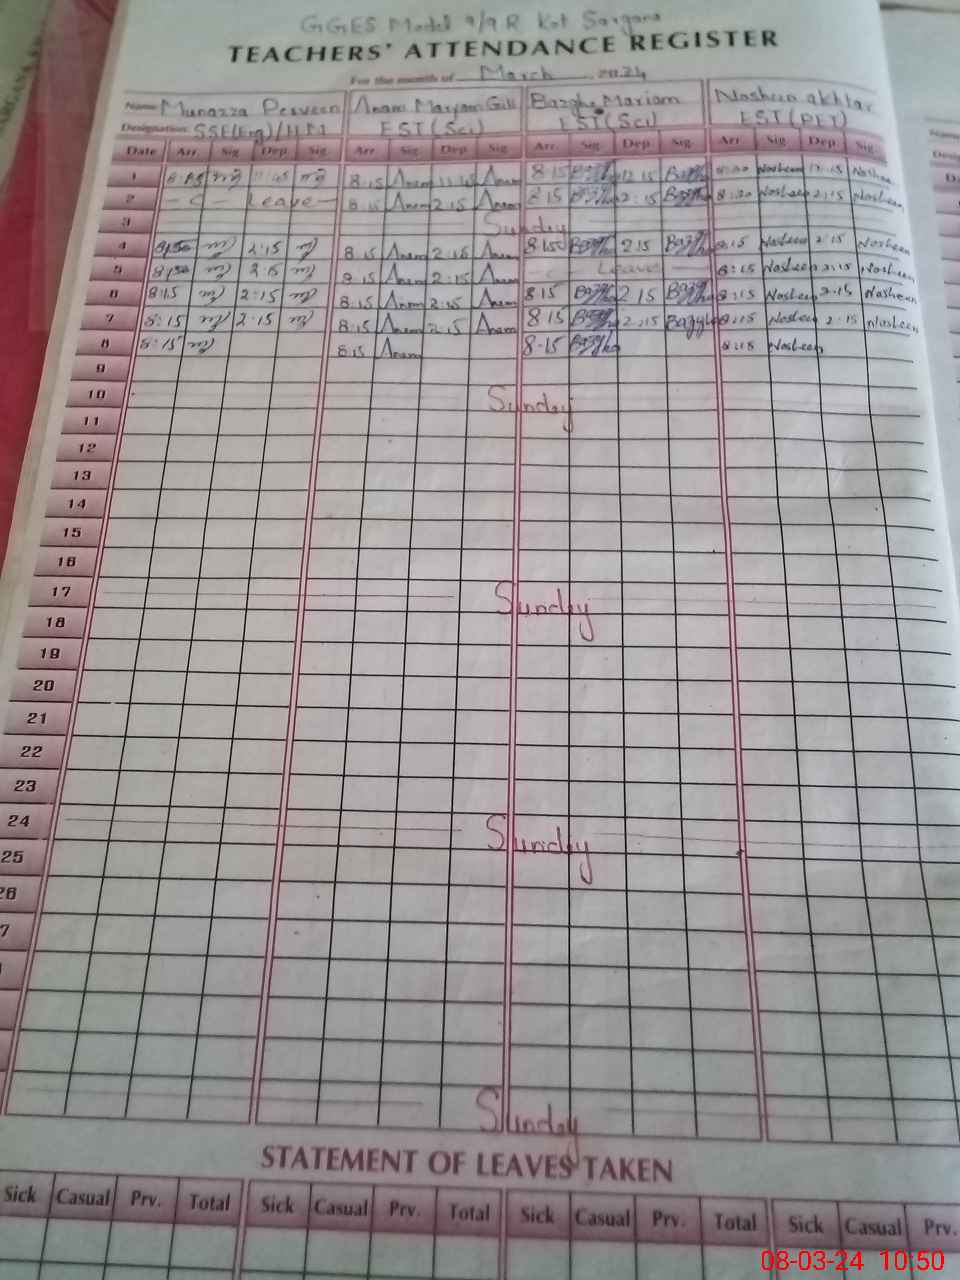 GGES Model 9/9 R Kot Sargana
TEACHERS' ATTENDANCE REGISTER
For the month of March 2024
Name Munazza Perveen Anam Maryam Gill Bazgha Mariam Nosheen akhtar
Designation SSE(Eng)/HM EST(Sci) EST(Sci) EST(PET)
Date Arr. Sig. Dep. Sig. Arr. Sig. Dep. Sig. Arr. Sig. Dep. Sig. Arr. Sig. Dep. Sig.
1 8:15 Anam Anam 8-15 Bazgha 12 15 Bazgha Nosheen 12:15 Nosheen
2 - C - Leave - 8:15 Anam 2:15 Anam 8 15 Bazgha 2:15 Bazgha 8:20 Nosheen 2:15 Nosheen
3 Sunday
4 2:15 8:15 Anam 2:15 Anam 8 15 Bazgha 2 15 Bazgha 8:15 Nosheen 2:15 Nosheen
5 8:15 Anam 2:15 Anam - C - Leave - 8:15 Nosheen 2:15 Nosheen
6 8:15 2:15 8:15 Anam 2:15 Anam 8 15 Bazgha 2 15 Bazgha 8:15 Nosheen 2:15 Nosheen
7 8:15 2:15 8:15 Anam 2:15 Anam 8 15 Bazgha 2:15 Bazgha 8:15 Nosheen 2:15 Nosheen
8 8:15 8:15 Anam 8-15 Bazgha 8:15 Nosheen
9
10 Sunday
11
12
13
14
15
16
17 Sunday
18
19
20
21
22
23
24 Sunday
25
26
7
Sunday
STATEMENT OF LEAVES TAKEN
Sick Casual Prv. Total Sick Casual Prv. Total Sick Casual Prv. Total Sick Casual Prv.
08-03-24 10:50